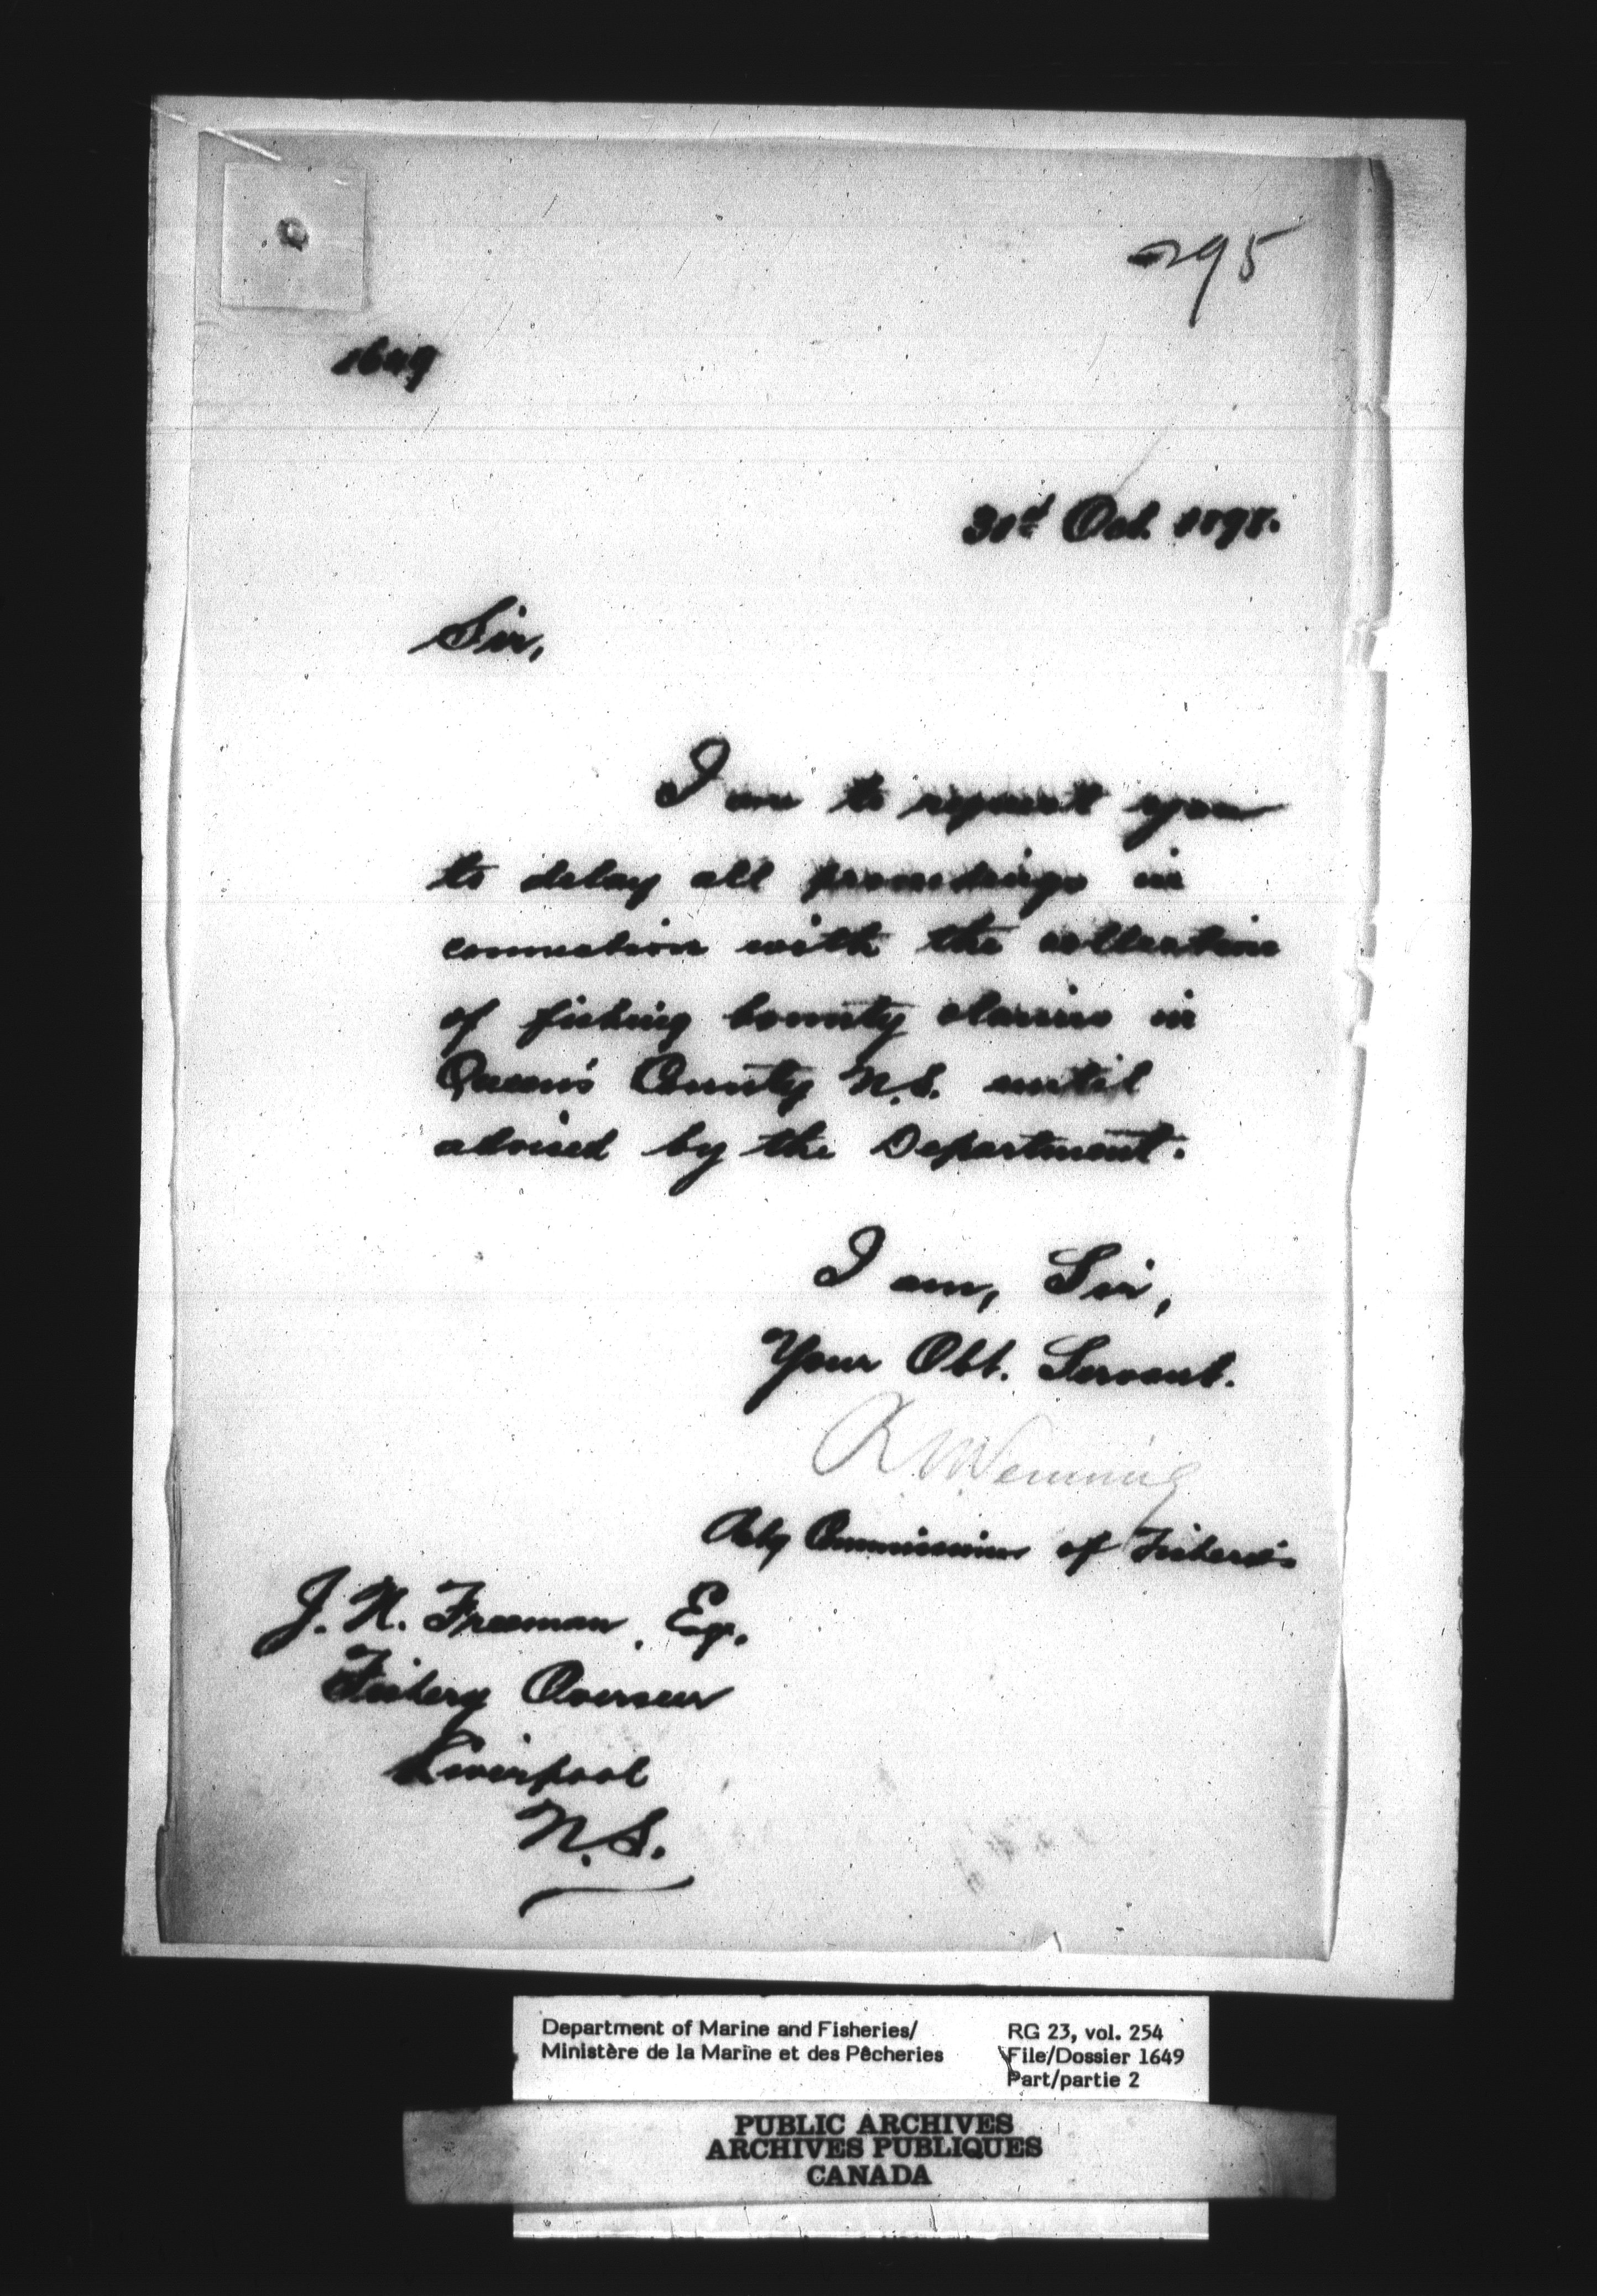 295
1649
31st Oct. 1898.
Sir,
I am to request you
to delay all proceedings in
connection with the collection
of fishing bounty claims in
Queen's County N.S. until
advised by the Department.
I am, Sir,
Your Obt. Servant.
R. N. Venning
Actg Commissioner of Fisheries
J. N. Freeman, Esq.
Fishery Overseer
Liverpool
N.S.
Department of Marine and Fisheries/
Ministère de la Marine et des Pêcheries
RG 23, vol. 254
File/Dossier 1649
Part/partie 2
PUBLIC ARCHIVES
ARCHIVES PUBLIQUES
CANADA